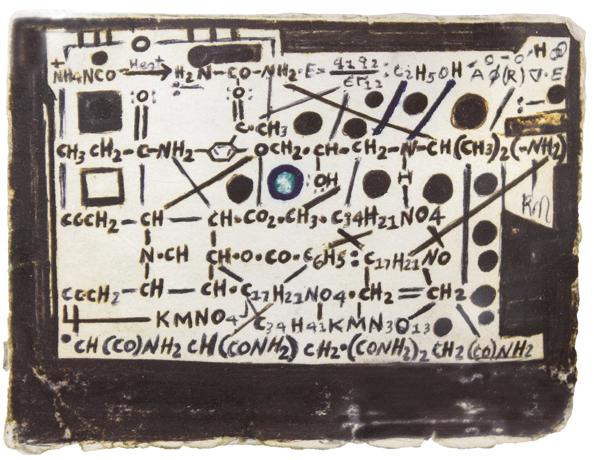 NH4NCO Heat H2N-CO-NH2·E= q1q2/εr12 :C2H5OH AØ(R)∇·E ·H
:O: O
C·CH3
CH3 CH2-C-NH2- OCH2·CH-CH2-N-CH(CH3)2(-NH2)
:OH H
CCCH2-CH CH·CO2·CH3·C34H21NO4
N·CH CH·O·CO·C6H5:C17H21NO
CCCH2-CH CH·C17H21NO4·CH2=CH2
KMNO4 C34H41KMN3O13
·CH(CO)NH2 CH(CONH2) CH2·(CONH2)2 CH2(CO)NH2